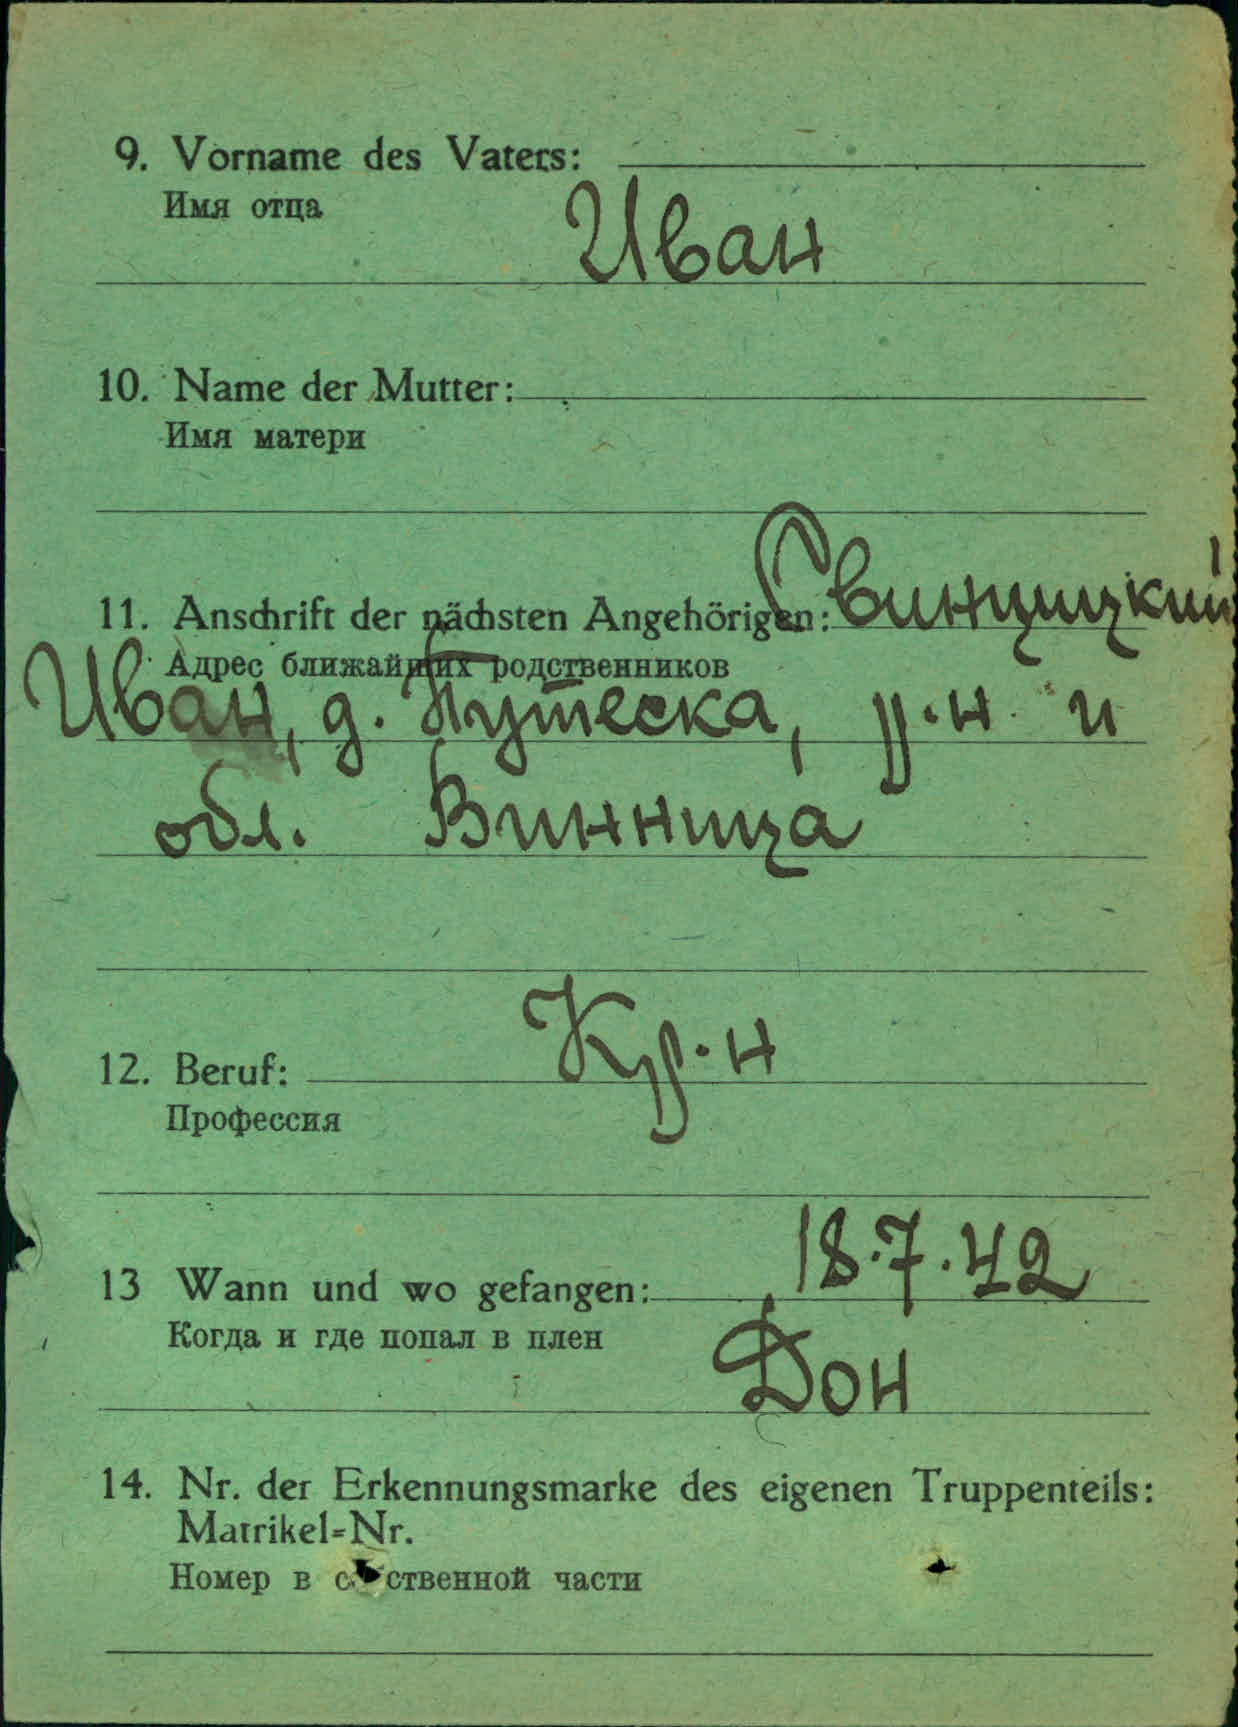 9. Vorname des Vaters:
Имя отца
Иван
10. Name der Mutter:
Имя матери
11. Anschrift der nächsten Angehörigen: Свинцицкий
Адрес ближайших родственников
Иван, д. Путеска, р.н и
обл. Винница
12. Beruf: Кр.н
Профессия
13 Wann und wo gefangen: 18.7.42
Когда и где попал в плен
Дон
14. Nr. der Erkennungsmarke des eigenen Truppenteils:
Matrikel=Nr.
Номер в собственной части